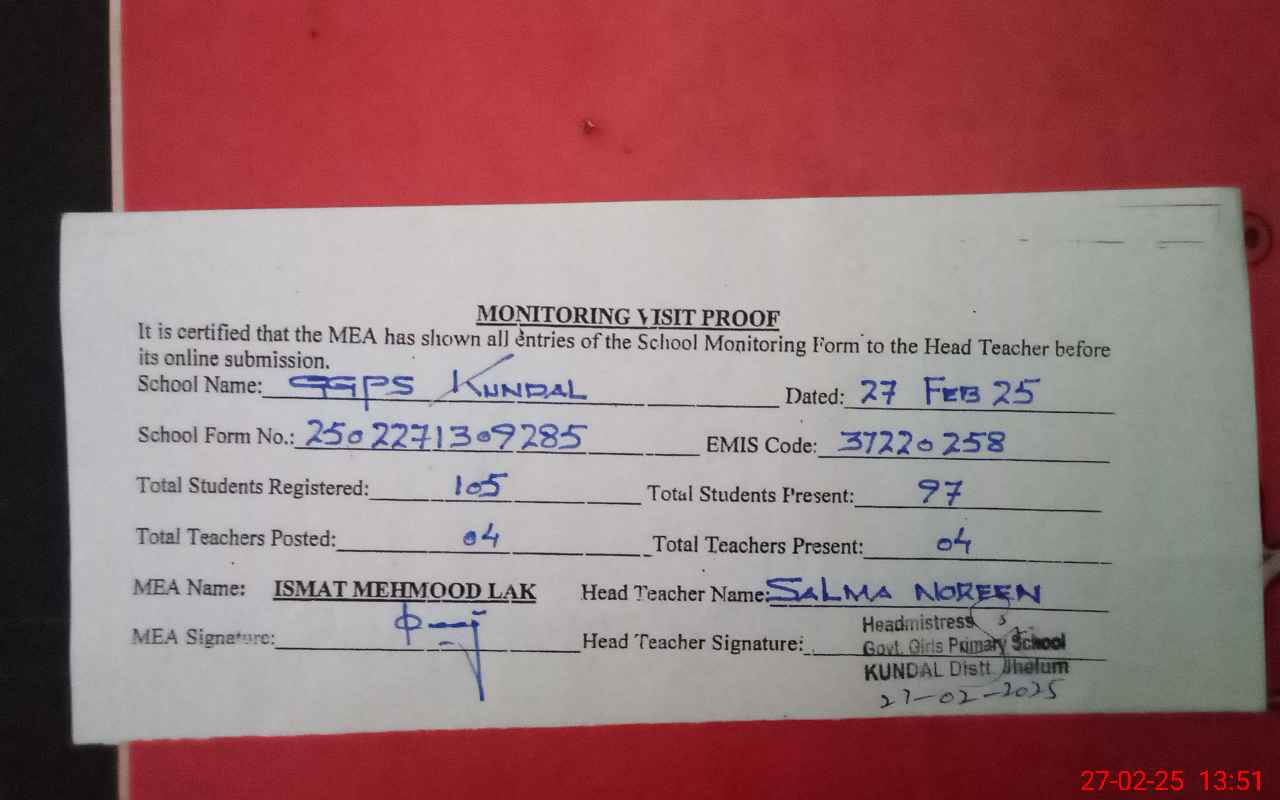 MONITORING VISIT PROOF
It is certified that the MEA has shown all entries of the School Monitoring Form to the Head Teacher before
its online submission.
School Name: GGPS KUNDAL Dated: 27 FEB 25
School Form No.: 2502271309285 EMIS Code: 37220258
Total Students Registered: 105 Total Students Present: 97
Total Teachers Posted: 04 Total Teachers Present: 04
MEA Name: ISMAT MEHMOOD LAK Head Teacher Name: SALMA NOREEN
MEA Signature: Head Teacher Signature:
Headmistress
Govt. Girls Primary School
KUNDAL Distt. Jhelum
27-02-2025
27-02-25 13:51